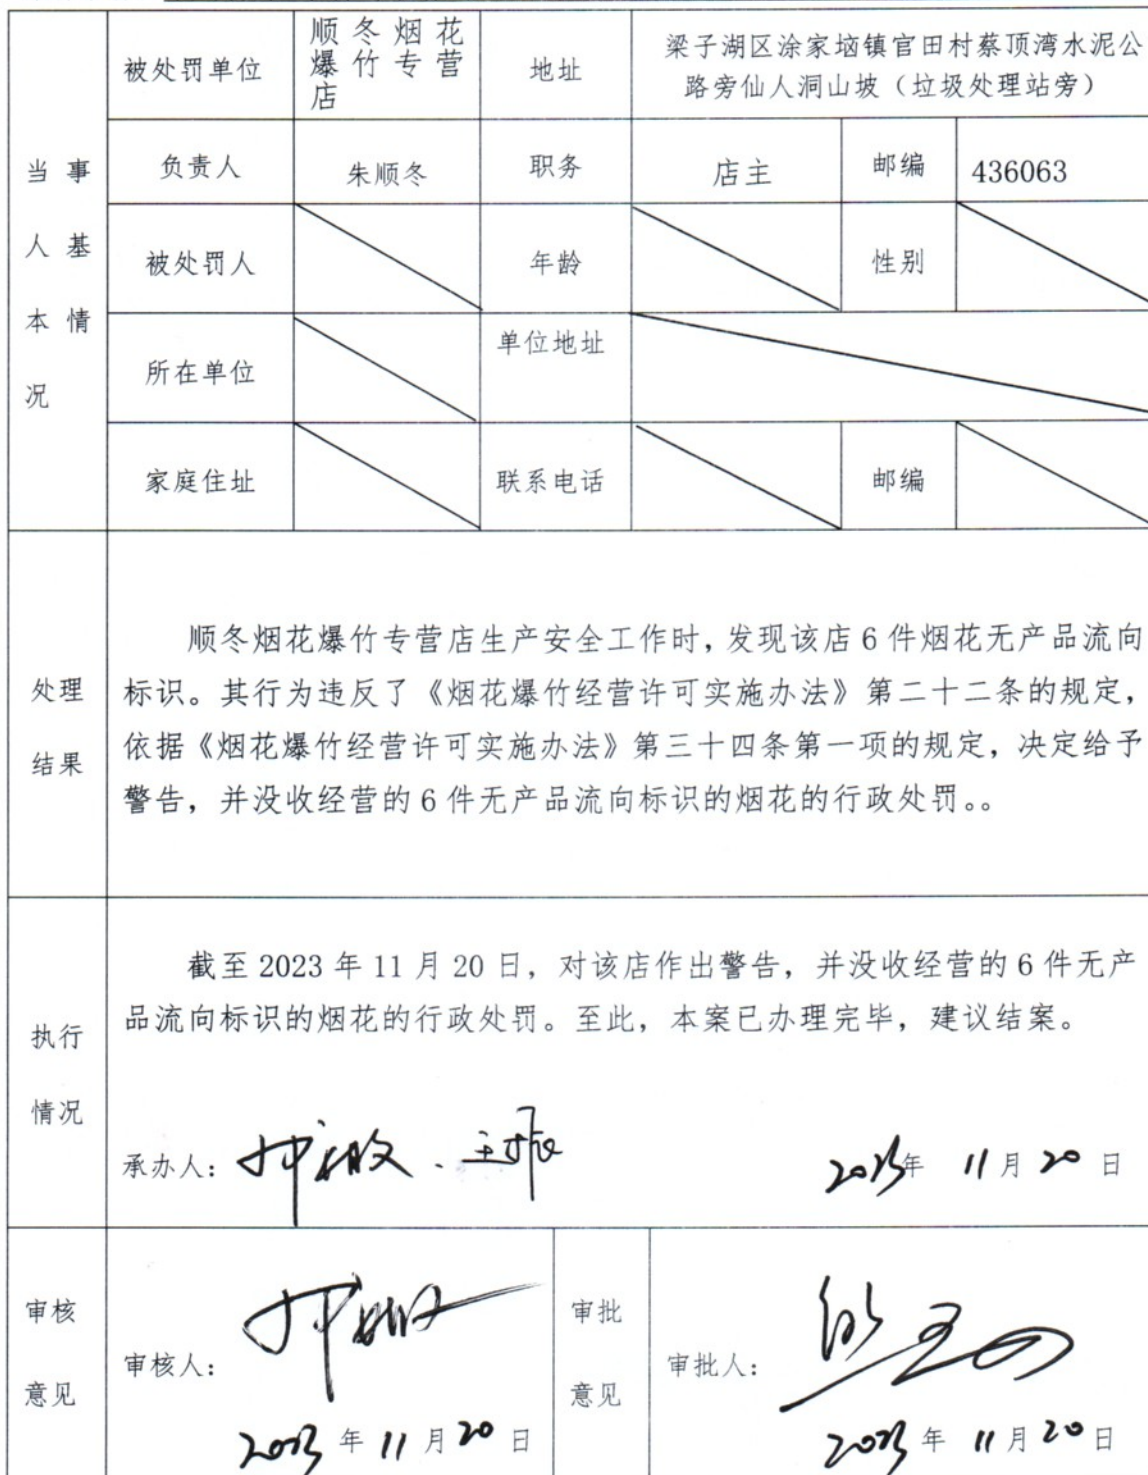 被处罚单位
顺冬烟花
爆竹专营
店
地址
梁子湖区涂家垴镇官田村蔡顶湾水泥公
路旁仙人洞山坡（垃圾处理站旁）
当事
人基
本情
况
负责人
朱顺冬
职务
店主
邮编
436063
被处罚人
年龄
性别
所在单位
单位地址
家庭住址
联系电话
邮编
处理
结果
顺冬烟花爆竹专营店生产安全工作时，发现该店6件烟花无产品流向
标识。其行为违反了《烟花爆竹经营许可实施办法》第二十二条的规定，
依据《烟花爆竹经营许可实施办法》第三十四条第一项的规定，决定给予
警告，并没收经营的6件无产品流向标识的烟花的行政处罚。。
执行
情况
截至2023年11月20日，对该店作出警告，并没收经营的6件无产
品流向标识的烟花的行政处罚。至此，本案已办理完毕，建议结案。
承办人：
2023年 11月20日
审核
意见
审核人：
2023年11月20日
审批
意见
审批人：
2023年11月20日